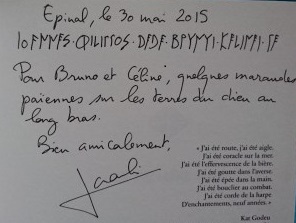 Epinal, le 30 mai 2015
Pour Bruno et Céline, quelques maraudes
païennes sur les terres du dieu au
long bras.
Bien amicalement,
« J'ai été route, j'ai été aigle.
J'ai été coracle sur la mer.
J'ai été l'effervescence de la bière.
J'ai été goutte dans l'averse.
J'ai été épée dans la main.
J'ai été bouclier au combat.
J'ai été corde de la harpe
D'enchantements, neuf années. »
Kat Godeu